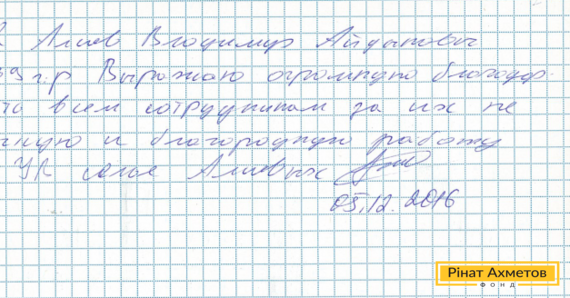 Алиев Владимир Айдынович
39 г.р Выражаю огромную благодар-
всем сотрудникам за их не
и благородную работу
семья Алиевых
05.12.2016
Рінат Ахметов
ФОНД